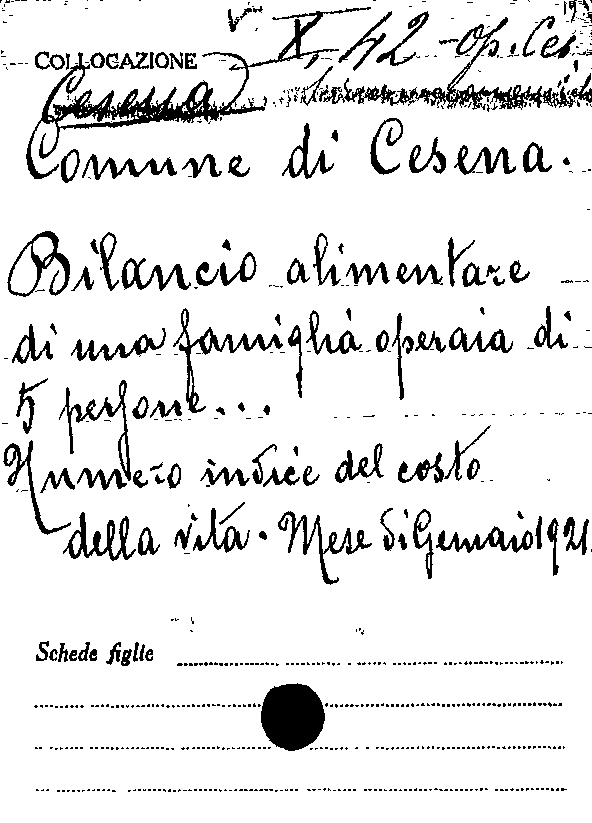 X, 42 - op. Ces.
COLLOCAZIONE
Cesena
Comune di Cesena.
Bilancio alimentare
di una famiglia operaia di
5 persone...
Numero indice del costo
della vita. Mese di Gennaio 1921.
Schede figlie